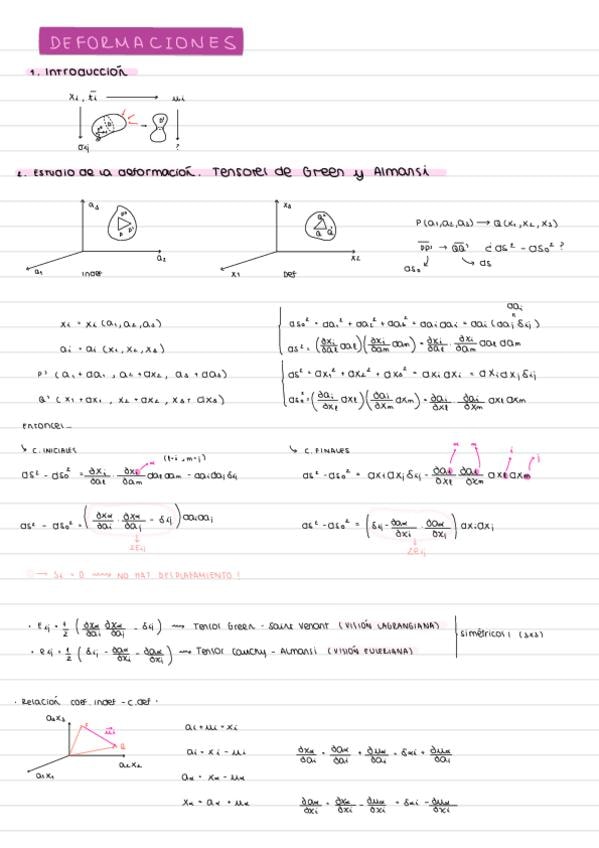 DEFORMACIONES
1. Introducción
xi, t̄i → ui
σij ?
2. Estudio de la deformación. Tensores de Green y Almansi
a3 a2 a1 Indef
x3 x2 x1 Def
P(a1,a2,a3) → Q(x1,x2,x3)
PP' → QQ' ¿ ds² - ds0² ?
ds0 ds
xi = xi (a1,a2,a3)
ai = ai (x1,x2,x3)
P' (a1+da1, a2+da2, a3+da3)
Q' (x1+dx1, x2+dx2, x3+dx3)
daj
ds0² = da1² + da2² + da3² = dai dai = dai (daj δij)
ds² = (∂xi/∂al dal)(∂xi/∂am dam) = ∂xi/∂al · ∂xi/∂am dal dam
ds² = dx1² + dx2² + dx3² = dxi dxi = dxi dxj δij
ds0² = (∂ai/∂xl dxl)(∂ai/∂xm dxm) = ∂ai/∂xl · ∂ai/∂xm dxl dxm
Entonces...
↳ C. INICIALES
(l=i, m=j)
ds² - ds0² = ∂xi/∂al · ∂xi/∂am dal dam - dai daj δij
↳ C. FINALES
α α i j
ds² - ds0² = dxi dxj δij - ∂ai/∂xl ∂ai/∂xm dxl dxm
ds² - ds0² = (∂xα/∂ai · ∂xα/∂aj - δij) dai daj
2Eij
ds² - ds0² = (δij - ∂aα/∂xi · ∂aα/∂xj) dxi dxj
2eij
→ Si = 0 → NO HAY DESPLAZAMIENTO!
· Eij = 1/2 (∂xα/∂ai ∂xα/∂aj - δij) → Tensor Green - Saint Venant (VISIÓN LAGRANGIANA)
· eij = 1/2 (δij - ∂aα/∂xi - ∂aα/∂xj) → Tensor Cauchy - Almansi (VISIÓN EULERIANA)
Simétricos! (3x3)
· Relación coef. indef - c. def ·
a3x3 a2x2 a1x1 P Q ui
ai + ui = xi
ai = xi - ui
aα = xα - uα
xα = aα + uα
∂xα/∂ai = ∂aα/∂ai + ∂uα/∂ai = δαi + ∂uα/∂ai
∂aα/∂xi = ∂xα/∂xi - ∂uα/∂xi = δαi - ∂uα/∂xi